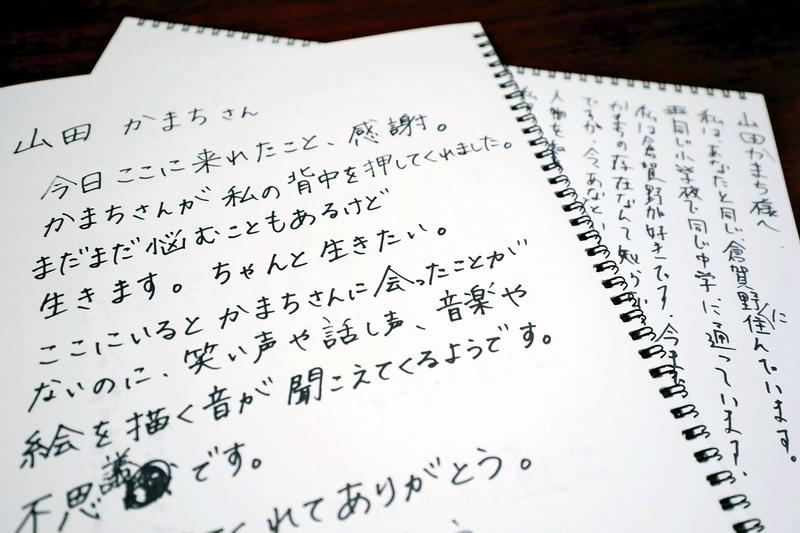 山田 かまちさん
今日ここに来れたこと、感謝。
かまちさんが私の背中を押してくれました。
まだまだ悩むこともあるけど
生きます。ちゃんと生きたい。
ここにいるとかまちさんに会ったことが
ないのに、笑い声や話し声、音楽や
絵を描く音が聞こえてくるようです。
不思議です。
くれてありがとう。
山田かまち様へ
私は、あなたと同じ倉賀野に住んでいます。
同じ小学校で同じ中学に通っています。
私は倉賀野が好きです。今ま
かまちの存在なんて知ら
ですが、今、あなたと
人物を
私